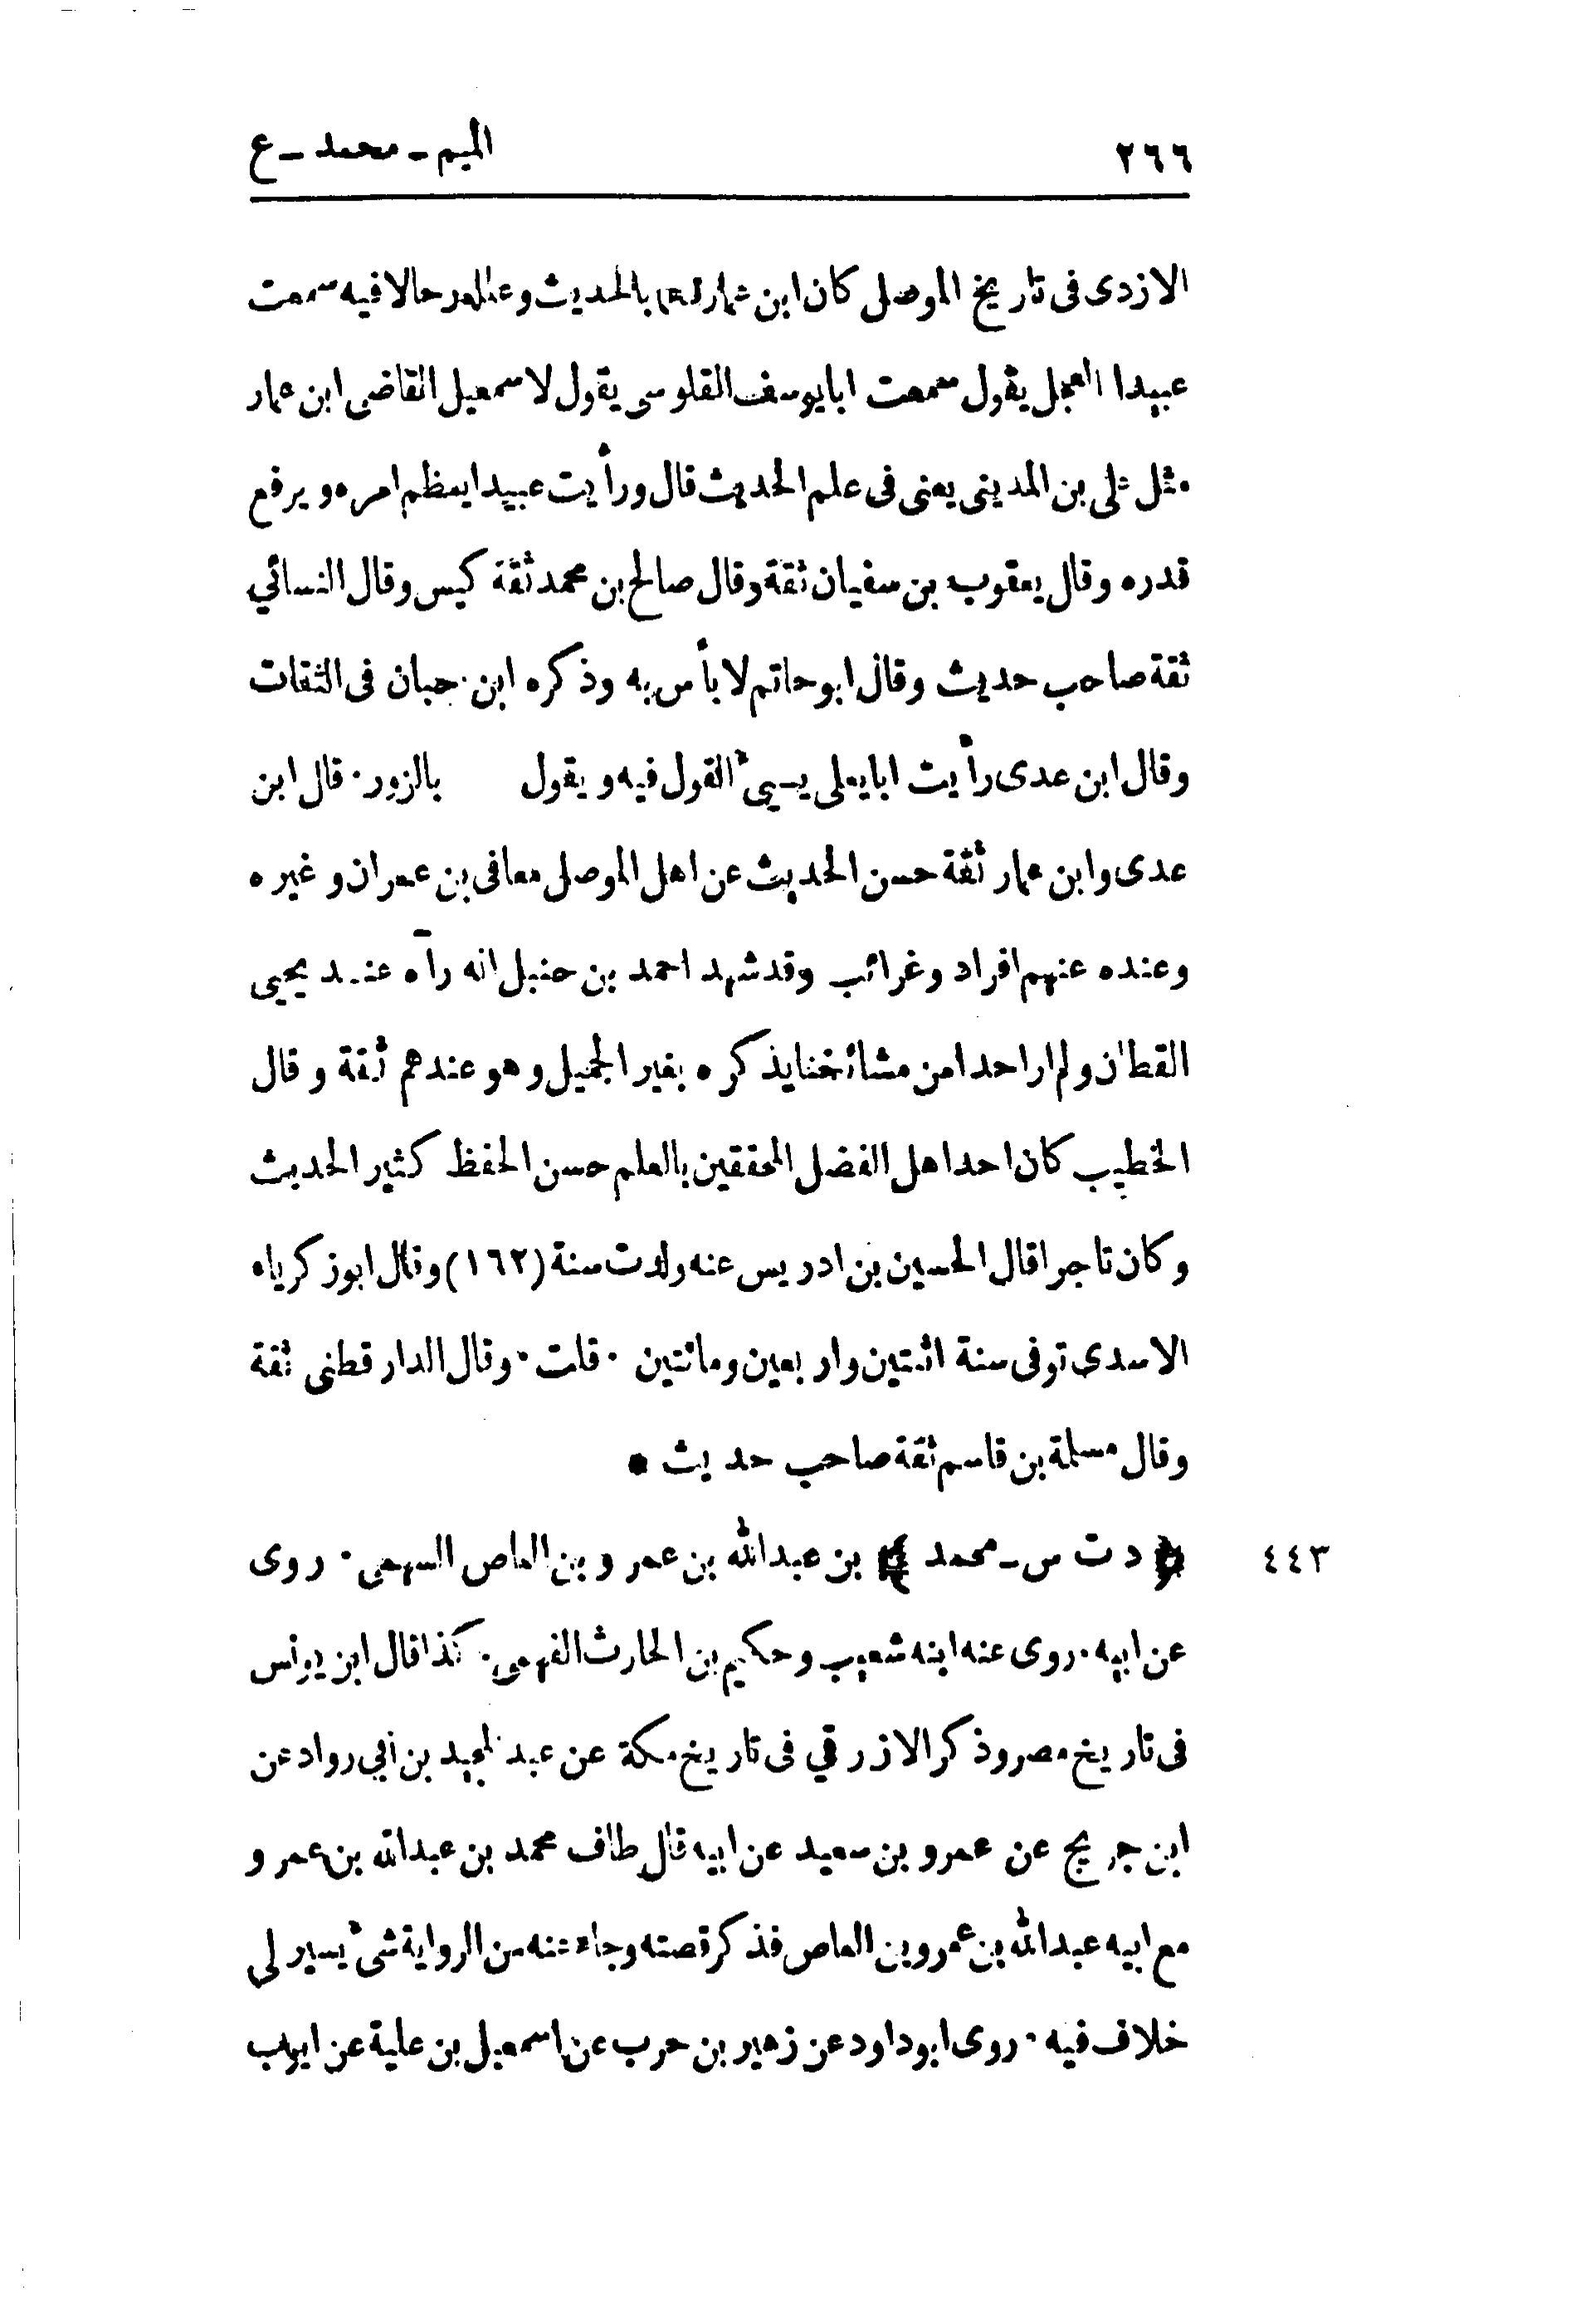 ٢٦٦ الميم - محمد - ع
الازدى فى تاريخ الموصل كان ابن عمار فهما بالحديث وعلله رحالا فيه سمعت
عبيدا العجل يقول سمعت ابا يوسف القلوسى يقول لاسمعيل القاضى ابن عمار
مثل على بن المدينى يعنى فى علم الحديث قال ورأيت عبيدا يعظم امره ويرفع
قدره وقال يعقوب بن سفيان ثقة وقال صالح بن محمد ثقة كيس وقال النسائي
ثقة صاحب حديث وقال ابو حاتم لا بأس به وذكره ابن حبان فى الثقات
وقال ابن عدى رأيت ابا يعلى يسيئ القول فيه ويقول بالزور · قال ابن
عدى وابن عمار ثقة حسن الحديث عن اهل الموصل معافى بن عمران وغيره
وعنده عنهم افراد وغرائب وقد شهد احمد بن حنبل انه رآه عند يحيى
القطان ولم ار احدا من مشائخنا يذكره بغير الجميل وهو عندهم ثقة وقال
الخطيب كان احد اهل الفضل المحققين بالعلم حسن الحفظ كثير الحديث
وكان تاجرا قال الحسين بن ادريس عنه ولدت سنة (١٦٢) وقال ابو زكرياه
الاسدى توفى سنة اثنتين واربعين ومائتين · قلت · وقال الدارقطنى ثقة
وقال مسلمة بن قاسم ثقة صاحب حديث •
٤٤٣ ﴿ د ت س - محمد ﴾ بن عبدالله بن عمرو بن العاص السهمى · روى
عن ابيه · روى عنه ابنه شعيب وحكيم بن الحارث الفهمى · كذا قال ابن يونس
فى تاريخ مصر وذكر الازرقي فى تاريخ مكة عن عبد المجيد بن أبي رواد عن
ابن جريج عن عمرو بن سعيد عن ابيه قال طاف محمد بن عبدالله بن عمرو
مع ابيه عبدالله بن عمرو بن العاص فذكر قصته وجاء عنه من الرواية شئ يسير لى
خلاف فيه · روى ابو داود عن زهير بن حرب عن اسمعيل بن علية عن ايوب